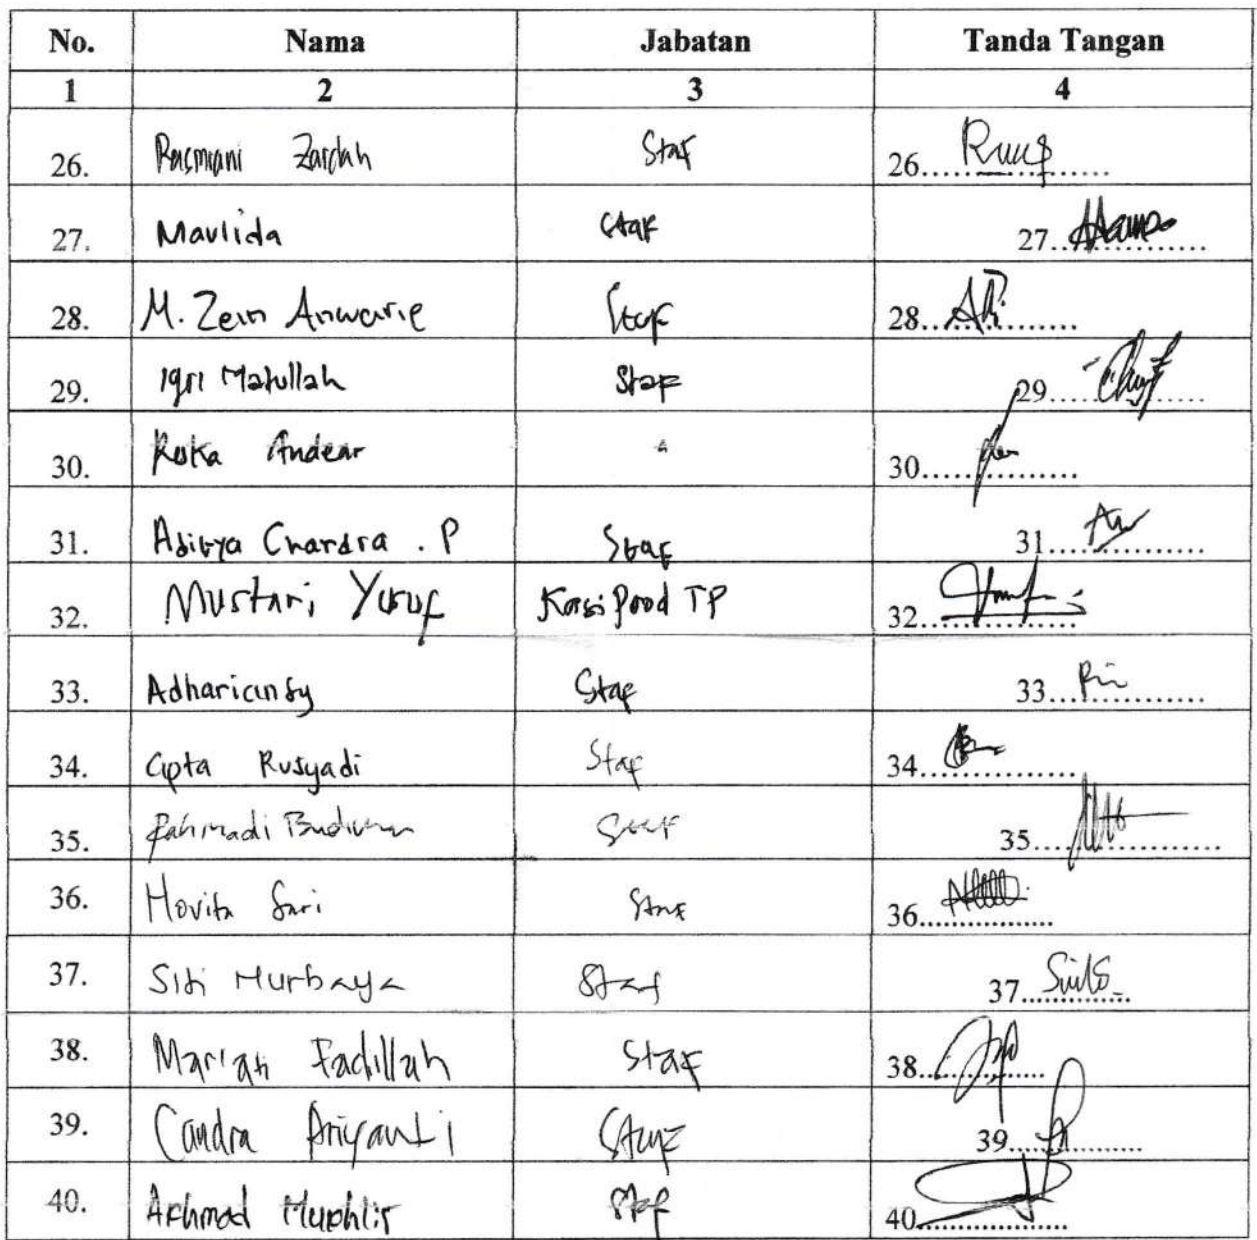 No. Nama Jabatan Tanda Tangan
1 2 3 4
26. Rasmiani Zardah Staf 26.
27. Maulida Staf 27.
28. M. Zein Anwarie Staf 28.
29. Iqri Matullah Staf 29.
30. Reska Andear 30.
31. Aditya Chandra . P Staf 31.
32. Mustari Yusuf Kasi Prod TP 32.
33. Adhariansy Staf 33.
34. Cipta Rusyadi Staf 34.
35. Rahmadi Budiman Staf 35.
36. Novita Sari Staf 36.
37. Siti Nurbaya Staf 37.
38. Mariati Fadillah Staf 38.
39. Candra Ariyanti Staf 39.
40. Akhmad Mukhlis Staf 40.